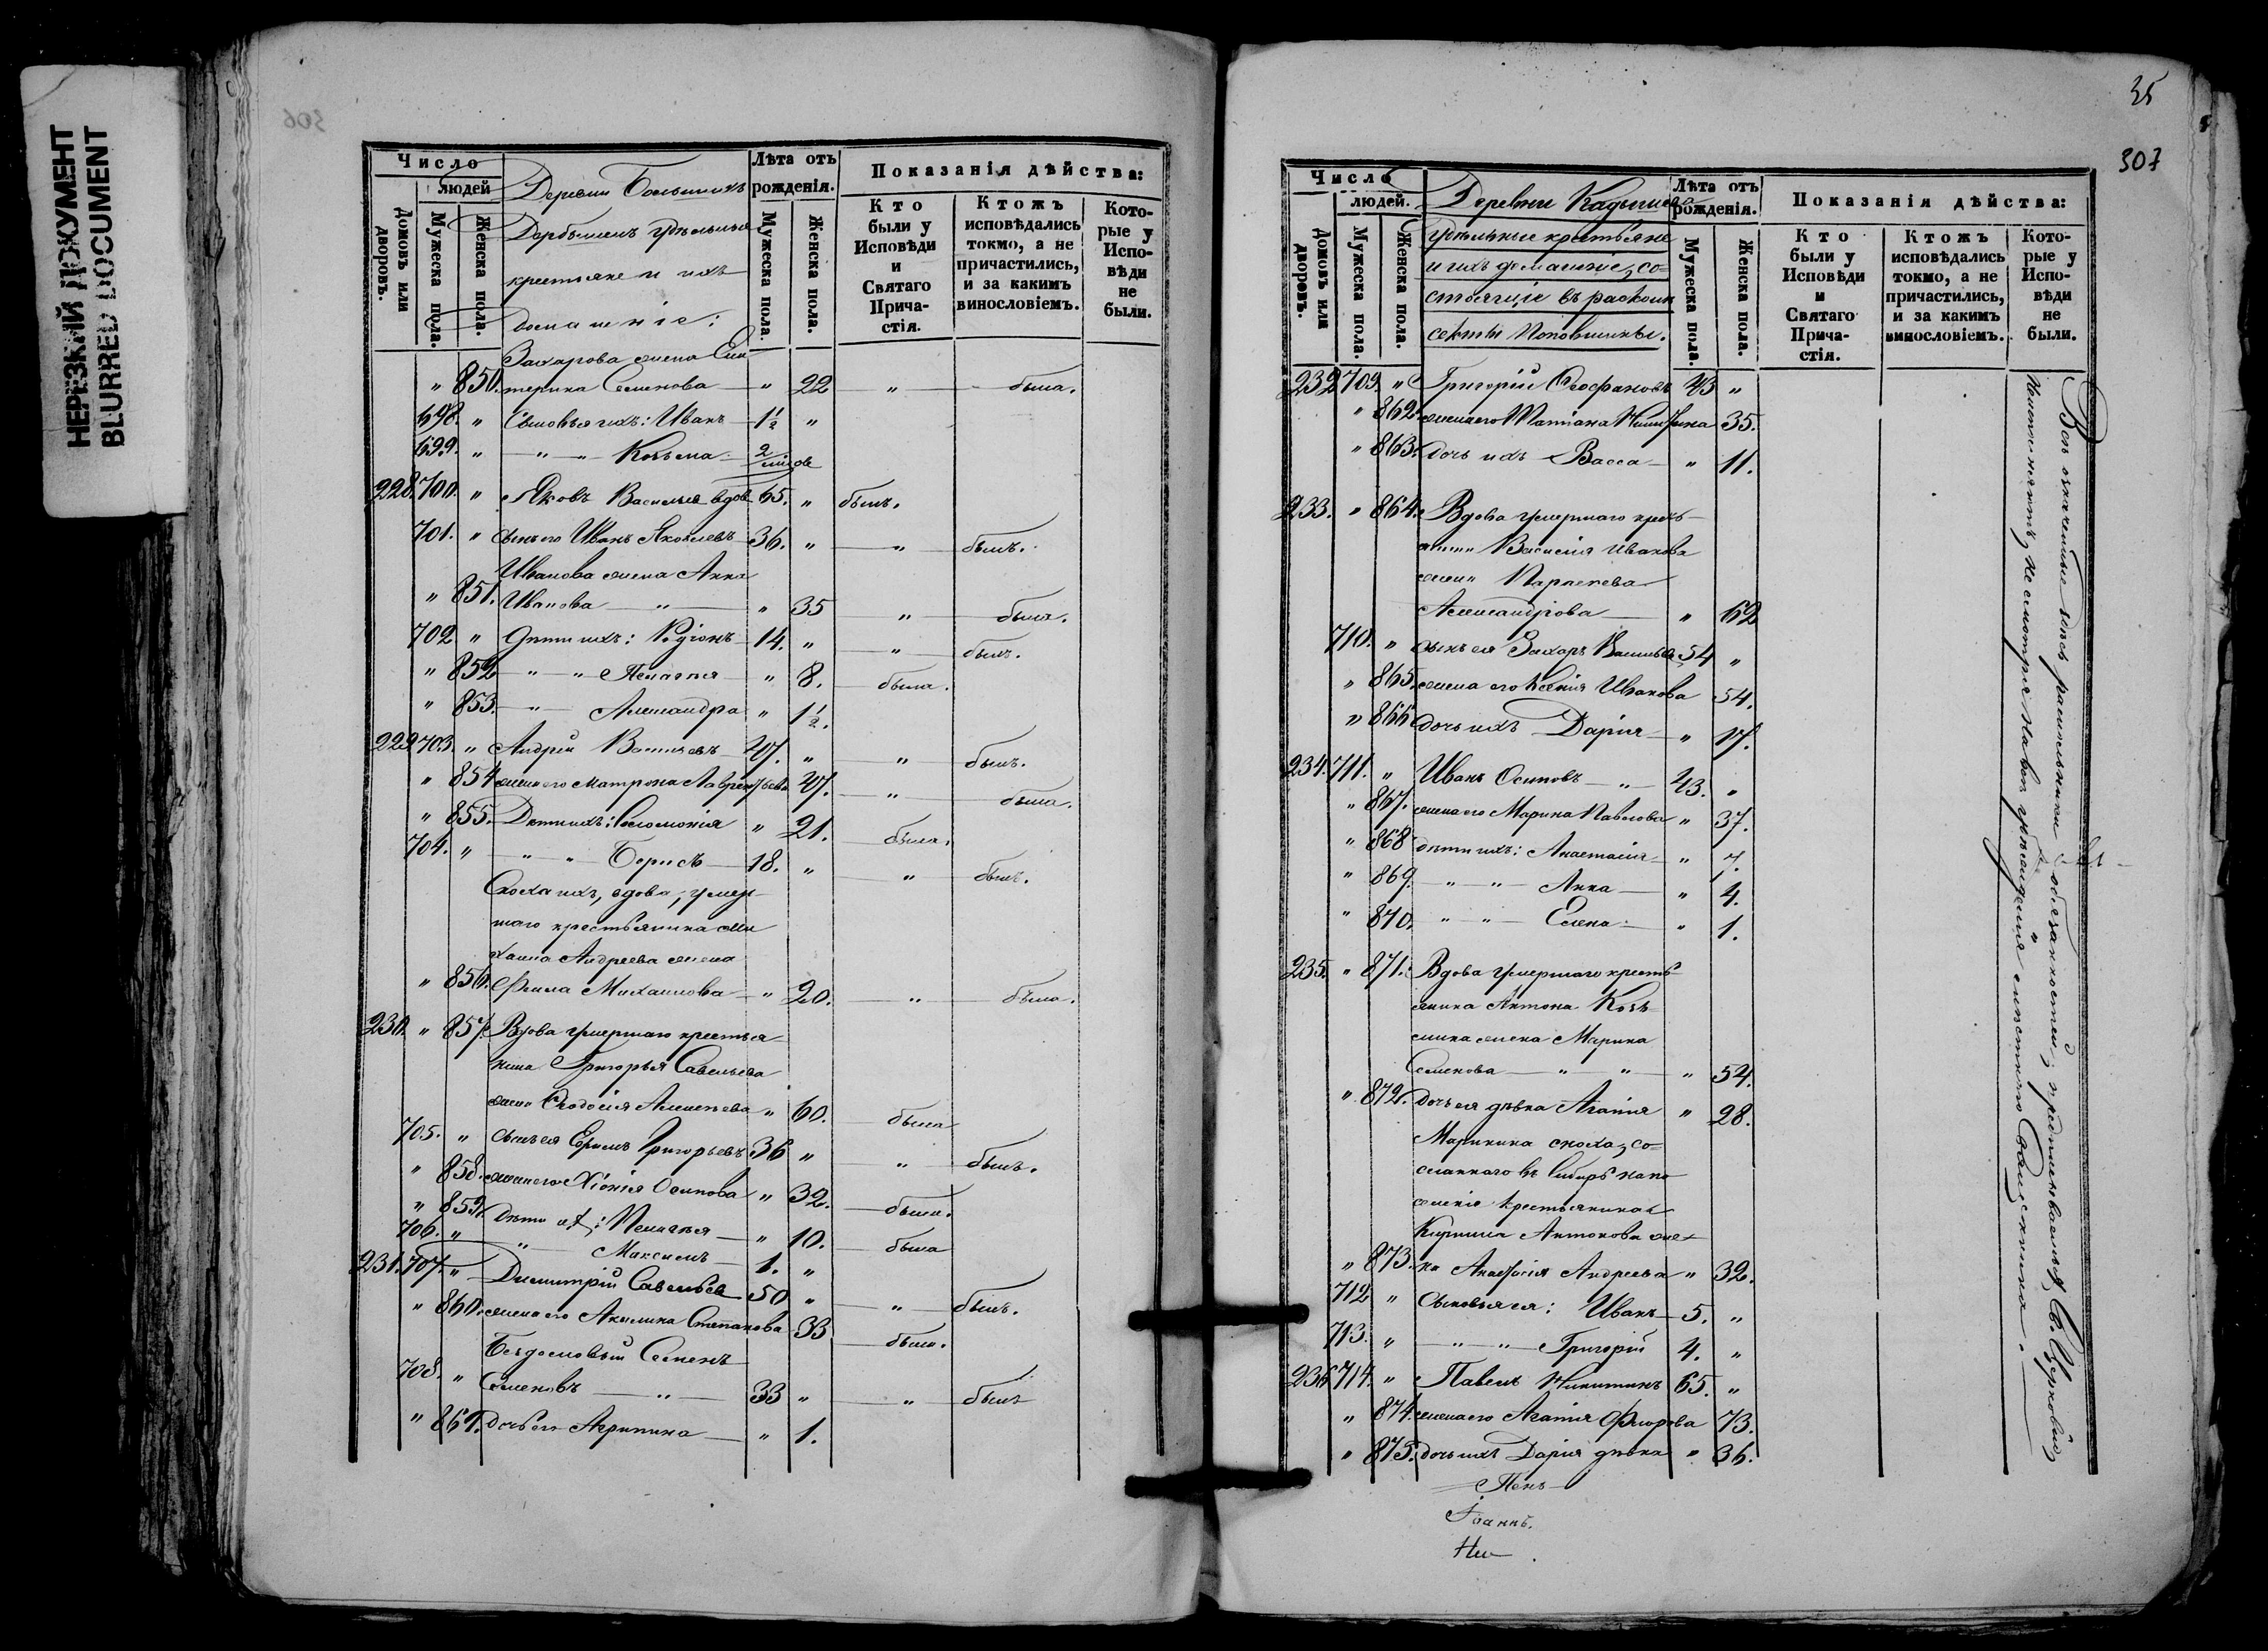 НЕРЕЗКИЙ ДОКУМЕНТ
BLURRED DOCUMENT
306
Число
людей
Домовъ или дворовъ.
Мужеска пола.
Женска пола.
Деревни Большихъ
Дербышекъ удѣльные
крестьяне и ихъ
домашніе:
Лѣта отъ рожденія.
Мужеска пола.
Женска пола.
Показанія дѣйства:
Кто были у Исповѣди и Святаго Причастія.
Ктожъ исповѣдались токмо, а не причастились, и за какимъ винословіемъ.
Которые у Исповѣди не были.
Захарова жена Ека
" 850. терина Семенова — " 22 — " — была.
698. " Сыновья ихъ: Иванъ — 1½ "
699. " — " — " — Козьма — 2 мѣсяцовъ
228. 700. " Яковъ Васильевъ вдов. 65. " былъ.
701. " сынъ его Иванъ Яковлевъ 36. " — " — былъ.
Иванова жена Анна
" 851. Ивановa — " — " 35 — " — была.
702. " Дѣти ихъ: Родіонъ — 14. " — " — былъ.
" 852 — " — " Пелагея — " 8. была.
" 853. — " — Александра " 1½.
229. 703. " Андрей Васильевъ 47. " — " былъ.
" 854 жена его Матрона Лаврентьева 47. — " — была.
" 855. Дѣти ихъ: Соломонія " 21. была.
704. " — " — " Борисъ — 18. " — " былъ.
Сноха ихъ, вдова, умер-
шаго крестьянина Ми
хаила Андреева жена
" 856. Фекла Михаилова — " 20. — " — была.
230. " 857. Вдова умершаго крестья
нина Григорья Савельева
жена Ѳеодосія Алексѣева " 60. была
705. " сынъ ея Ефимъ Григорьевъ 36 " — " былъ.
" 858. жена его Хіонія Осипова " 32. была.
" 859. Дѣти ихъ: Пелагея — " 10. была
706. " — " — Максимъ — 1. "
231. 707. " Димитрій Савельевъ 50 " — " былъ.
" 860. жена его Акилина Степанова 33 была.
Бездомовый Семенъ
708. " Семеновъ — " — 33 " — " былъ
" 861. дочь его Агрипина — " 1.
35
307
Число
людей.
Домовъ или дворовъ.
Мужеска пола.
Женска пола.
Деревни Кадышева
удѣльные крестьяне
и ихъ домашніе, со-
стоящіе въ расколѣ
секты поповщины.
Лѣта отъ рожденія.
Мужеска пола.
Женска пола.
Показанія дѣйства:
Кто были у Исповѣди и Святаго Причастія.
Ктожъ исповѣдались токмо, а не причастились, и за какимъ винословіемъ.
Которые у Исповѣди не были.
232 709. " Григорій Ѳеофановъ 43 "
" 862. жена его Татіана Никифорова 35.
" 863. дочь ихъ Васса — " 11.
233. " 864. Вдова умершаго кресть-
Василія Иванова
жена Параскева
Александрова — " 62
710. " сынъ ея Захаръ Васильевъ 54 "
" 865. жена его Ксенія Иванова 54.
" 866 дочь ихъ Дарія — " 17.
234. 711. " Иванъ Осиповъ — " 43. "
" 867. жена его Марина Павлова " 37.
" 868 дѣти ихъ: Анастасія — " 7.
" 869. — " — " — Анна — " 4.
" 870. — " — " — Елена — " 1.
235. " 871. Вдова умершаго кресть-
янина Антона Козь-
мина жена Марина
Семенова — " — " — " 54.
" 872. дочь ея дѣвка Агапія " 28.
Маринина сноха, со-
сланнаго въ Сибирь на по
селеніе крестьянина
Кирилла Антонова же-
" 873. на Анастасія Андреева " 32.
712 " Сыновья ея: Иванъ — 5. "
713. " — " — " — Григорій 4. "
236 714. " Павелъ Никитинъ 65. "
" 874. жена его Агапія Флорова 73.
" 875. дочь ихъ Дарія дѣвка " 36.
Іоаннъ.
Всѣ означенные здѣсь раскольники обязанностей, предписываемыхъ Св. Церковію,
не исполняютъ, не смотря на всѣ убѣжденія мѣстнаго Священника.